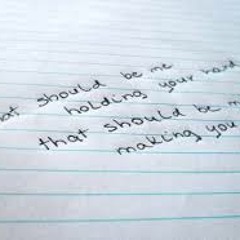 at should be me
holding your hand
that should be m
making you